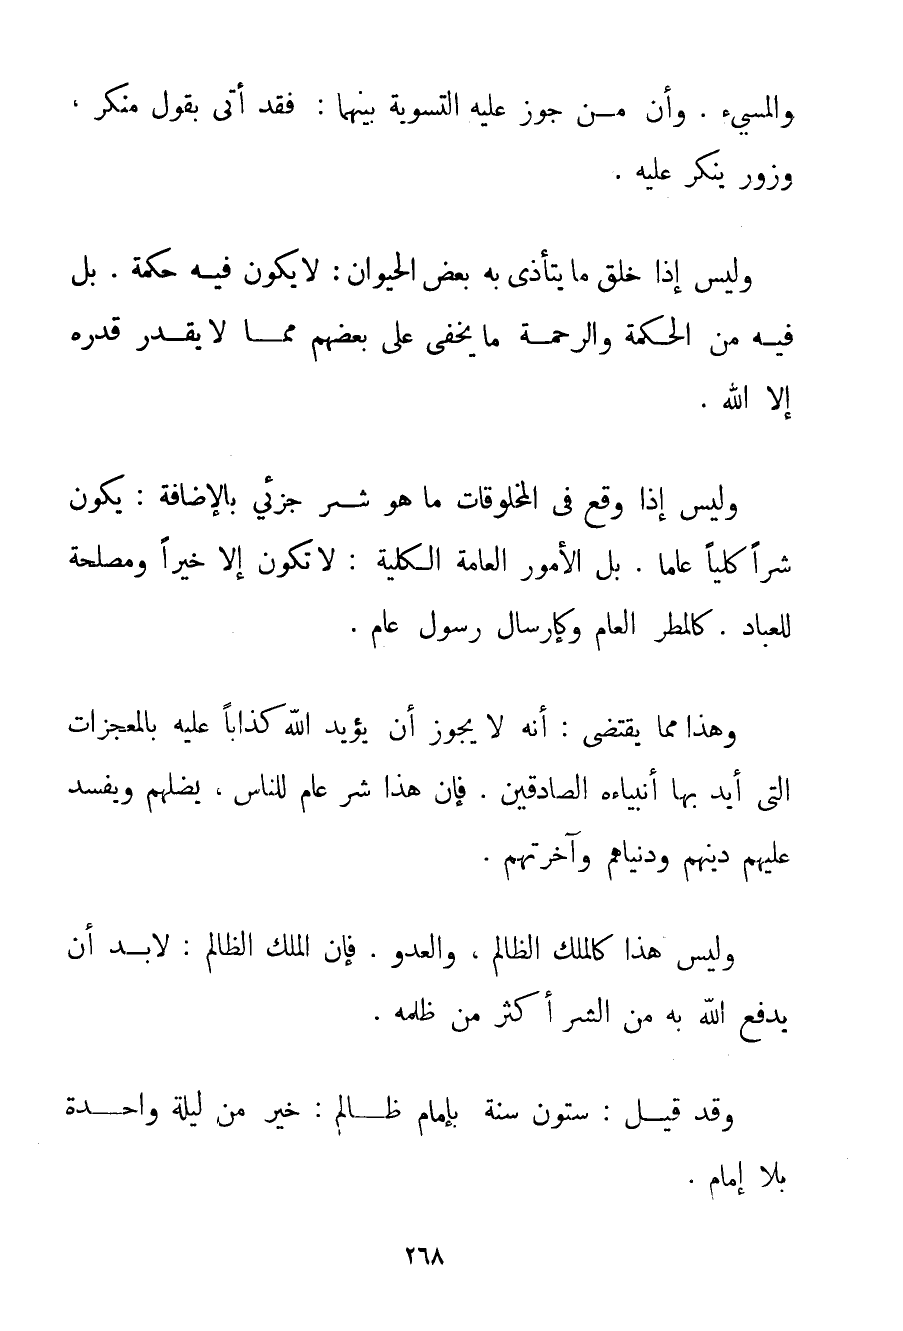 والمسيء . وأن من جوز عليه التسوية بينهما : فقد أتى بقول منكر ،
وزور ينكر عليه .
وليس إذا خلق ما يتأذى به بعض الحيوان : لا يكون فيه حكمة . بل
فيه من الحكمة والرحمة ما يخفى على بعضهم مما لا يقدر قدره
إلا الله .
وليس إذا وقع فى المخلوقات ما هو شر جزئي بالإضافة : يكون
شراً كلياً عاما . بل الأمور العامة الكلية : لا تكون إلا خيراً ومصلحة
للعباد . كالمطر العام وكإرسال رسول عام .
وهذا مما يقتضى : أنه لا يجوز أن يؤيد الله كذاباً عليه بالمعجزات
التى أيد بها أنبياءه الصادقين . فإن هذا شر عام للناس ، يضلهم ويفسد
عليهم دينهم ودنياهم وآخرتهم .
وليس هذا كالملك الظالم ، والعدو . فإن الملك الظالم : لابد أن
يدفع الله به من الشر أكثر من ظلمه .
وقد قيل : ستون سنة بإمام ظالم : خير من ليلة واحدة
بلا إمام .
٢٦٨